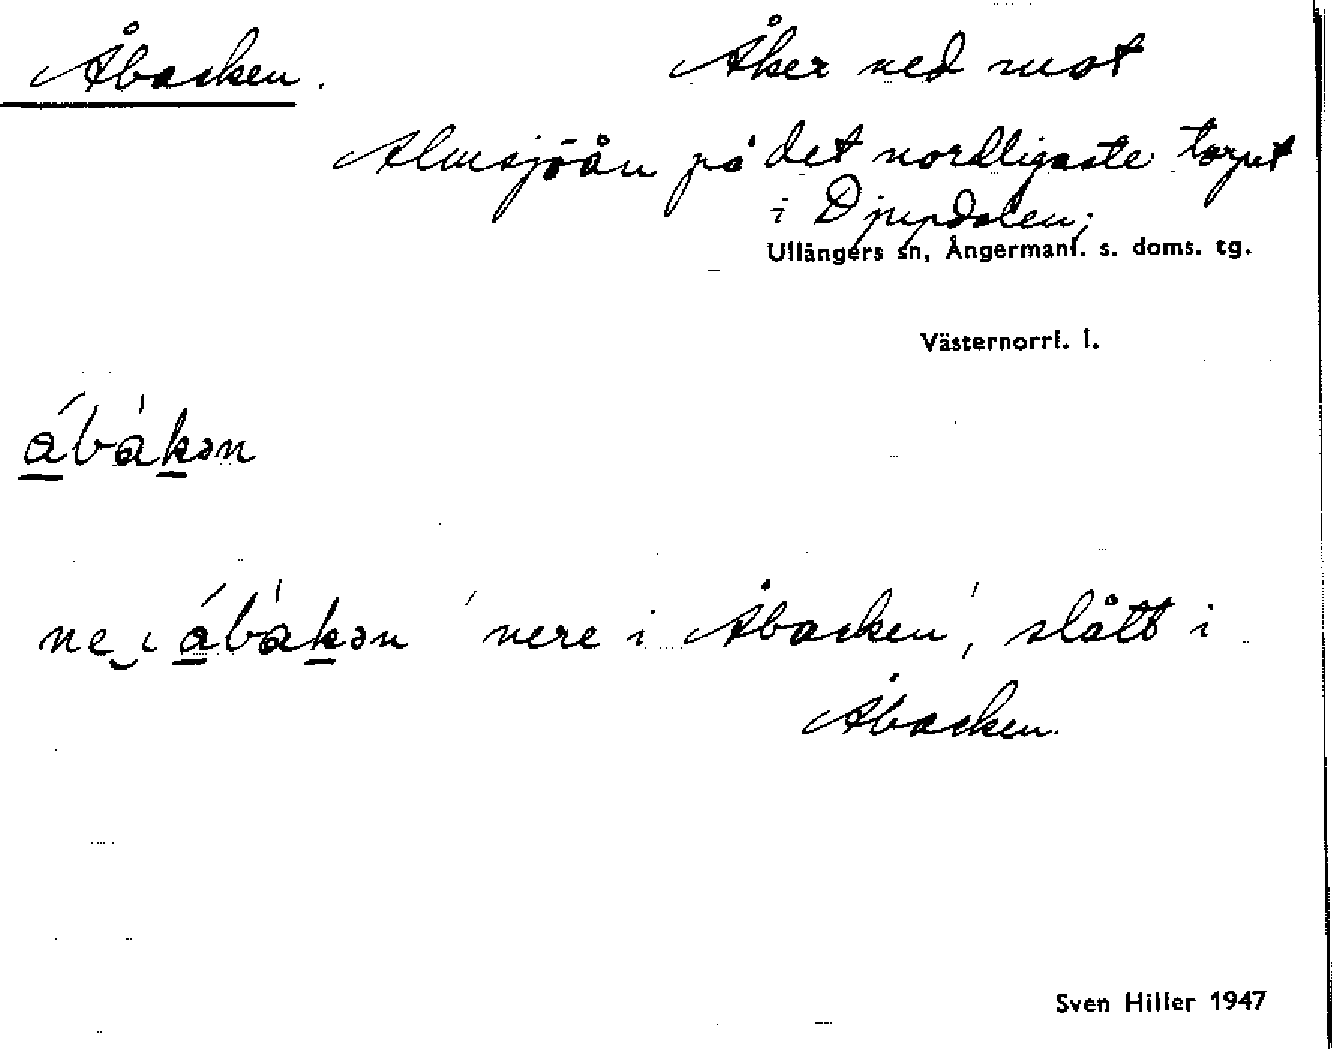 Åbacken. Åker ned mot
Almsjöån på det nordligaste torpet
i Djupdalen;
Ullångers sn, Ångermanl. s. doms. tg.
Västernorrl. l.
ábàkən
ne ɩ ábàkən 'nere i Åbacken', slått i
Åbacken.
Sven Hiller 1947